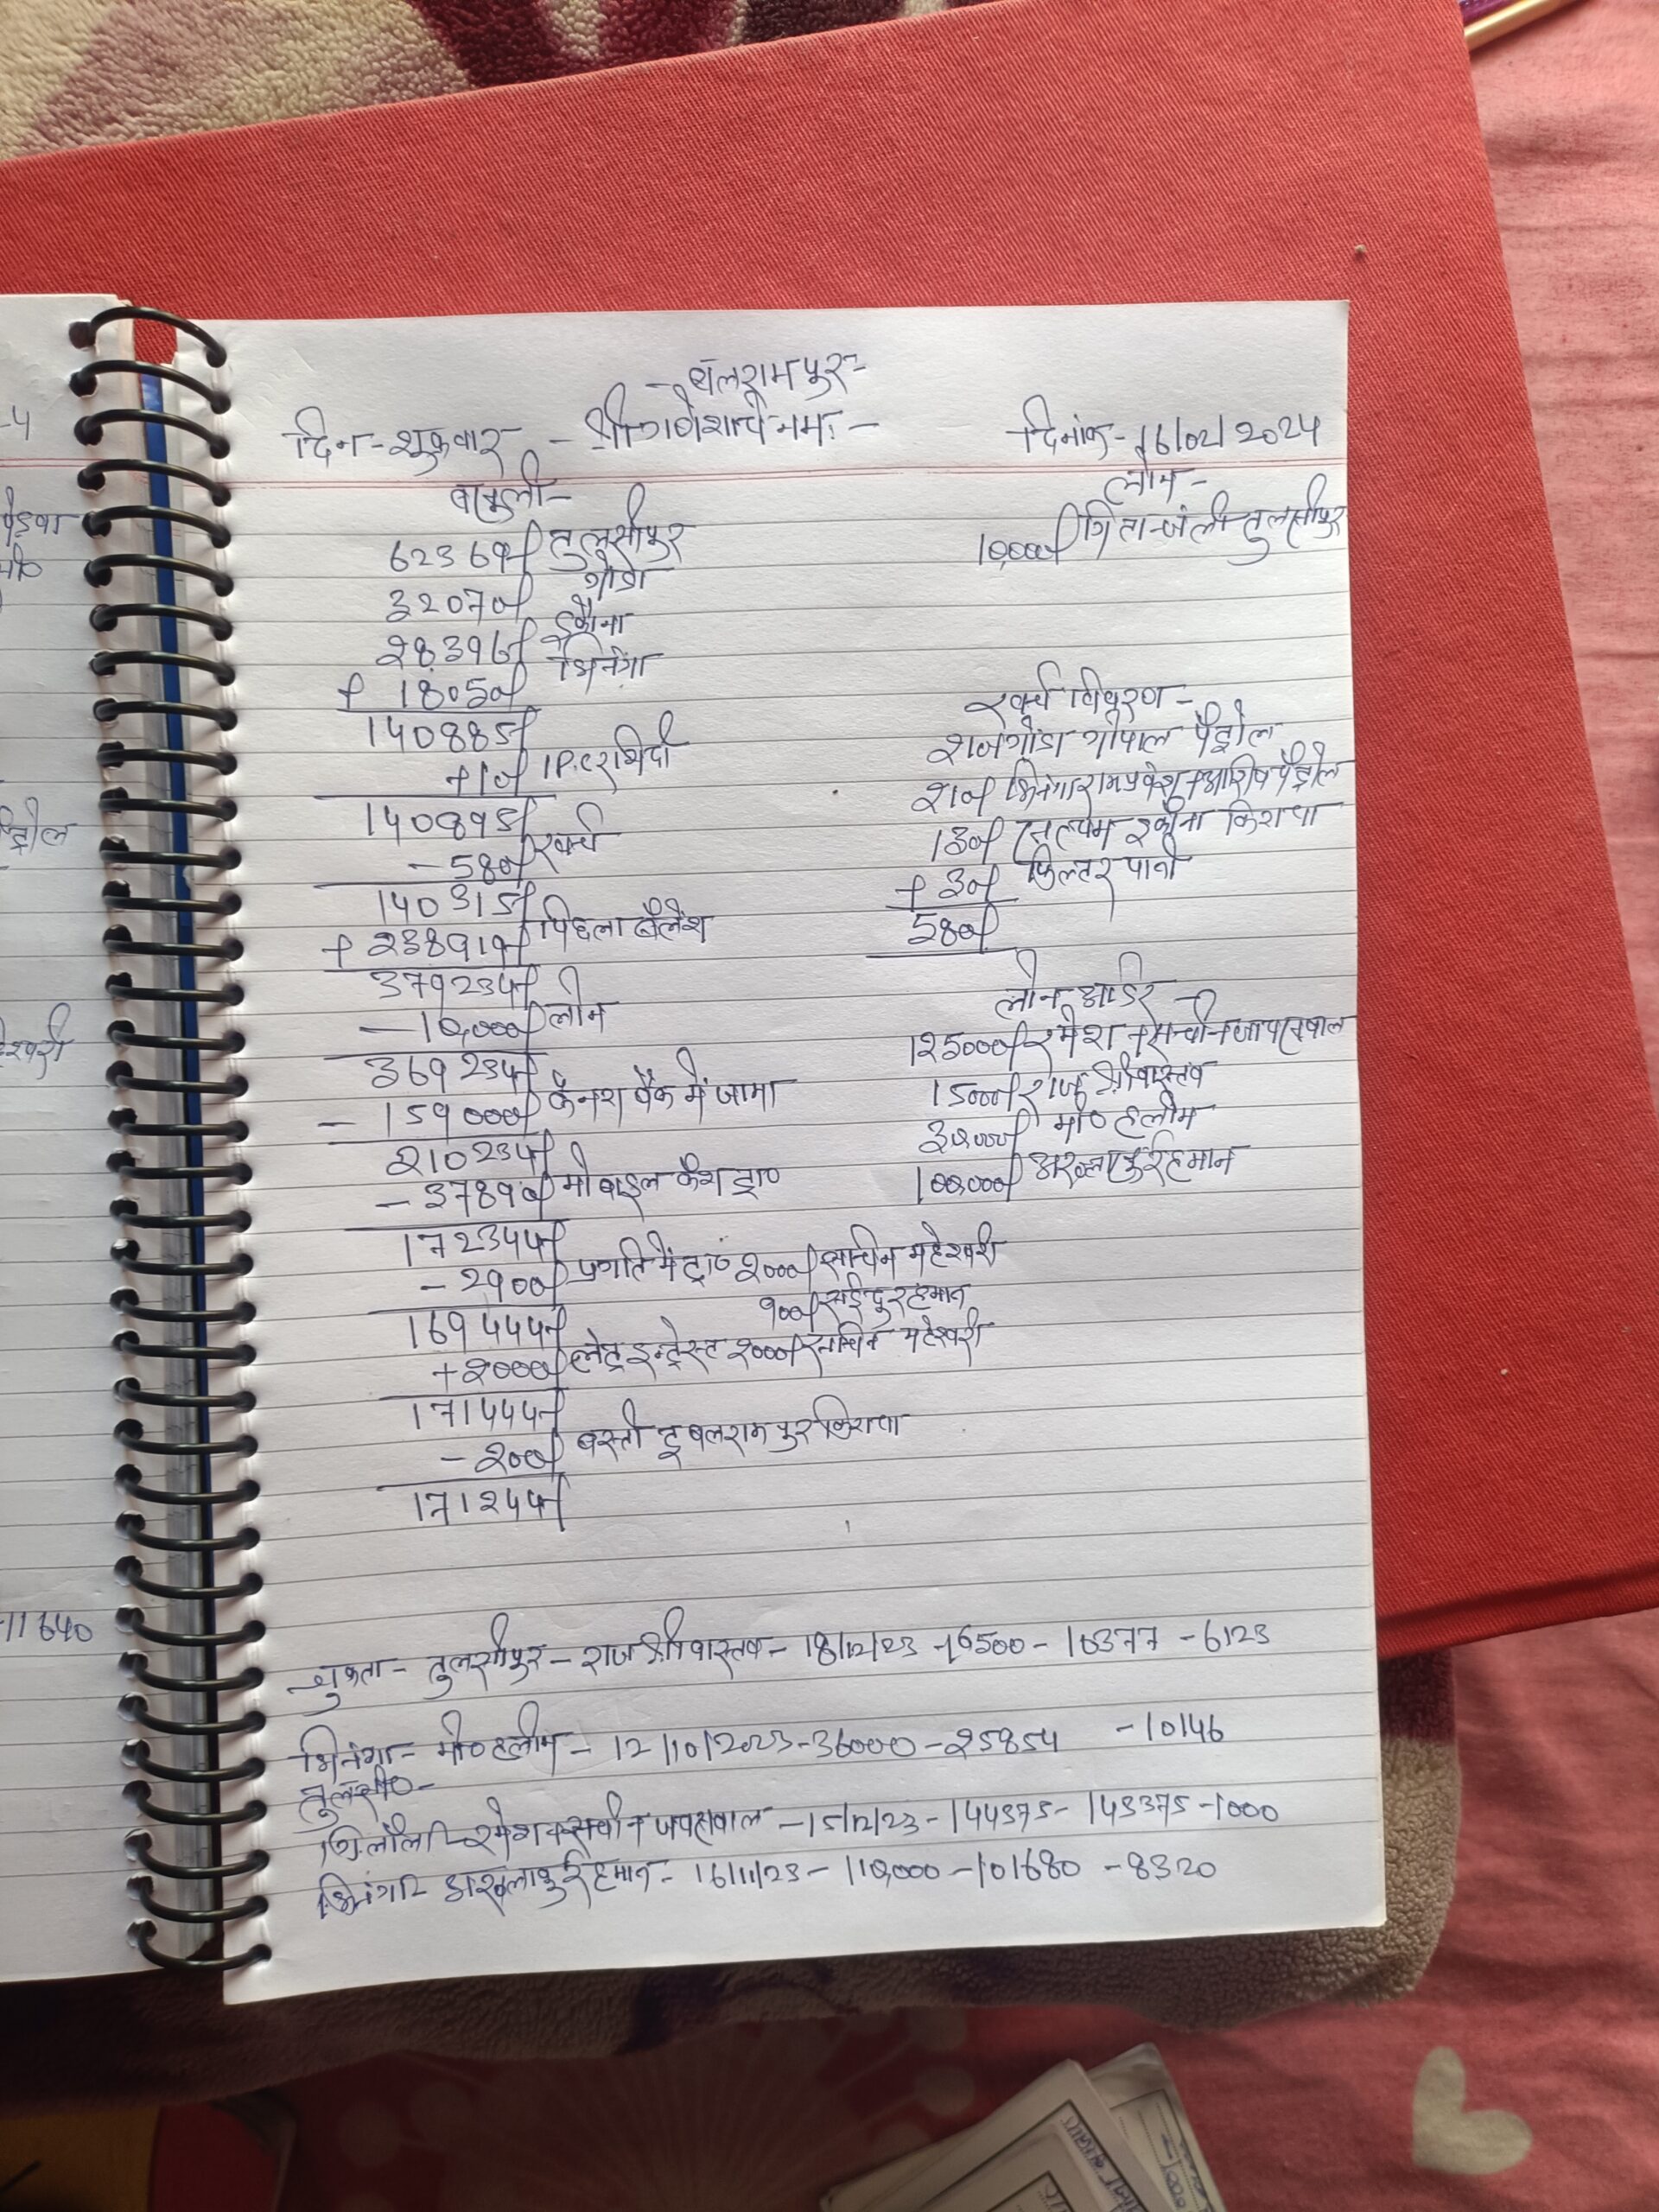 - बलरामपुर -
दिन - शुक्रवार - श्री गणेशाय नमः - दिनांक - 16/02/2024
वसूली - लोन -
62369/ तुलसीपुर 10,000/ गितान्जंली तुलसीपुर
32070/ गोंडा
28396/ इकौना
+ 18050/ भिनंगा
140885/ खर्च विवरण -
+ 10/ I.P.C रशिदी 210/ गोंडा गोपाल पैट्रोल
140895/ 210/ भिनंगा रामप्रवेश + आशिष पैट्रोल
- 580/ खर्च 130/ इकौना किराया
140315/ + 30/ फिल्टर पानी
+ 238919/ पिछला बैलेंश 580/
379234/
- 10,000/ लोन लोन आर्डर -
369234/ 125000/ रमेश + सचीन जायसवाल
- 159000/ कैनरा बैंक में जामा 15000/ राज श्रीवास्तव
210234/ 30,000/ मो० हलीम
- 37890/ मोबाइल कैश ट्रा० 100,000/ अख्लाकुर्रहमान
172344/
- 2900/ प्रगति में ट्रा० 2000/ सचिन महेश्वरी
900/ सईदुर्रहमान
169444/
+ 2000/ लेट इन्ट्रेस्ट 2000/ सचिन महेश्वरी
171444/
- 200/ बस्ती टू बलरामपुर किराया
171244/
चुकता - तुलसीपुर - राज श्रीवास्तव - 18/12/23 - 16500 - 10377 - 6123
भिनंगा - मो० हलीम - 12/10/2023 - 36000 - 25854 - 10146
तुलसी० -
रमेश + सचीन जयसवाल - 15/12/23 - 144375 - 143375 - 1000
भिनंगा - अख्लाकुर्रहमान - 16/11/23 - 110,000 - 101680 - 8320
-4
पेड़वा
ट्रोल
हेश्वरी
11640